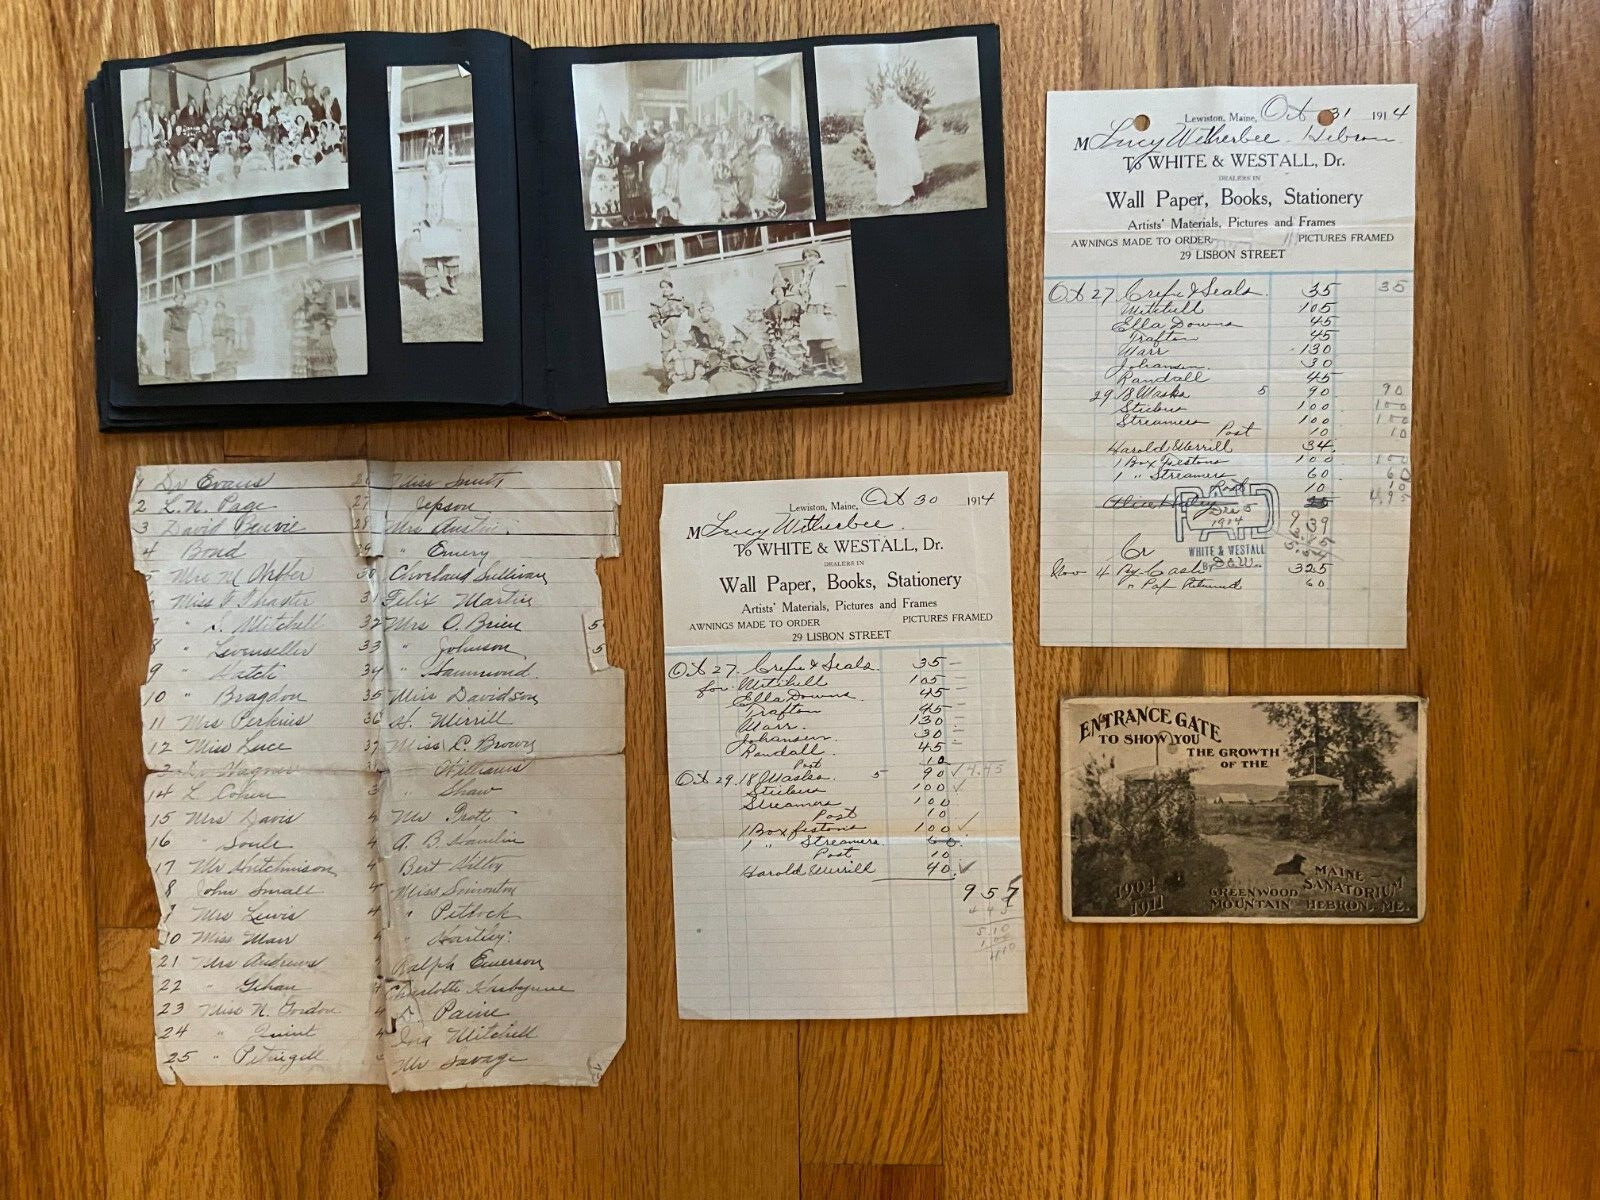 Lewiston, Maine, Oct 31 1914
M Lucy Witherbee. Hebron
To WHITE & WESTALL, Dr.
DEALERS IN
Wall Paper, Books, Stationery
Artists' Materials, Pictures and Frames
AWNINGS MADE TO ORDER PICTURES FRAMED
29 LISBON STREET
Oct 27 Crepe & Seals. 35 35
Mitchell 105
Ella Downs 45
Trafton 45
Marr 130
Johansen 30
Randall 45
29 18 Masks 5 90 90
Stickers 100 100
Streamers 100 100
Post 10 10
Harold Merrill 34
1 Box Festons 100 100
1 " Streamers 60 60
Post 10 10
Alice 25
9 39
PAID
Dec 5
1914
WHITE & WESTALL
By
Cr
Nov 4 By Cash 325
" Returned 60
1 Dr Evans
2 L. N. Page
3 David
4 Bond
5 Mrs M Webber
6 Miss
7 " S. Mitchell
8 " Levenseller
9 " Hatch
10 " Bragdon
11 Mrs Perkins
12 Miss Luce
Dr Wagner
14 L. Cohen
15 Mrs Davis
16 " Soule
17 Mr Hutchinson
8 John Small
Mrs Lewis
0 Miss Marr
21 Mrs Andrews
22 " Gehan
23 Miss N. Gordon
24 " Quint
25 " Petengill
Miss Smith
27 Jepson
28 Mrs Austin.
29 " Emery
30 Cleveland Sullivan
31 Felix Martin
32 Mrs O. Brien
33 " Johnson
34 " Hammond.
35 Miss Davidson
36 H. Merrill
37 Miss C. Brown
" Williams
" Shaw
4 Mr Trott
4 A. B. Hamlin
4 Bert Wiley
4 Miss Simonton
4 " Petlock
" Hartley.
Ralph Emerson
4 Charlotte
4 " Paine
4 Ina Mitchell
Mr Savage
5
5
Lewiston, Maine, Oct 30 1914
M Lucy Witherbee.
To WHITE & WESTALL, Dr.
DEALERS IN
Wall Paper, Books, Stationery
Artists' Materials, Pictures and Frames
AWNINGS MADE TO ORDER PICTURES FRAMED
29 LISBON STREET
Oct 27. Crepe & Seals. 35
for Mitchell 105
Ella Downs 45
Trafton 45
Marr. 130
Johansen. 30
Randall. 45
Post 10
Oct 29. 18 Masks. 5 90 4.45
Stickers 100
Streamers 100
Post 10
1 Box festons 100
1 " Streamers 60.
Post 10
Harold Merrill 40
9 57
4 45
5.10
1.00
4 10
ENTRANCE GATE
TO SHOW YOU
THE GROWTH
OF THE
MAINE
SANATORIUM
GREENWOOD
MOUNTAIN HEBRON, ME.
1904
1911